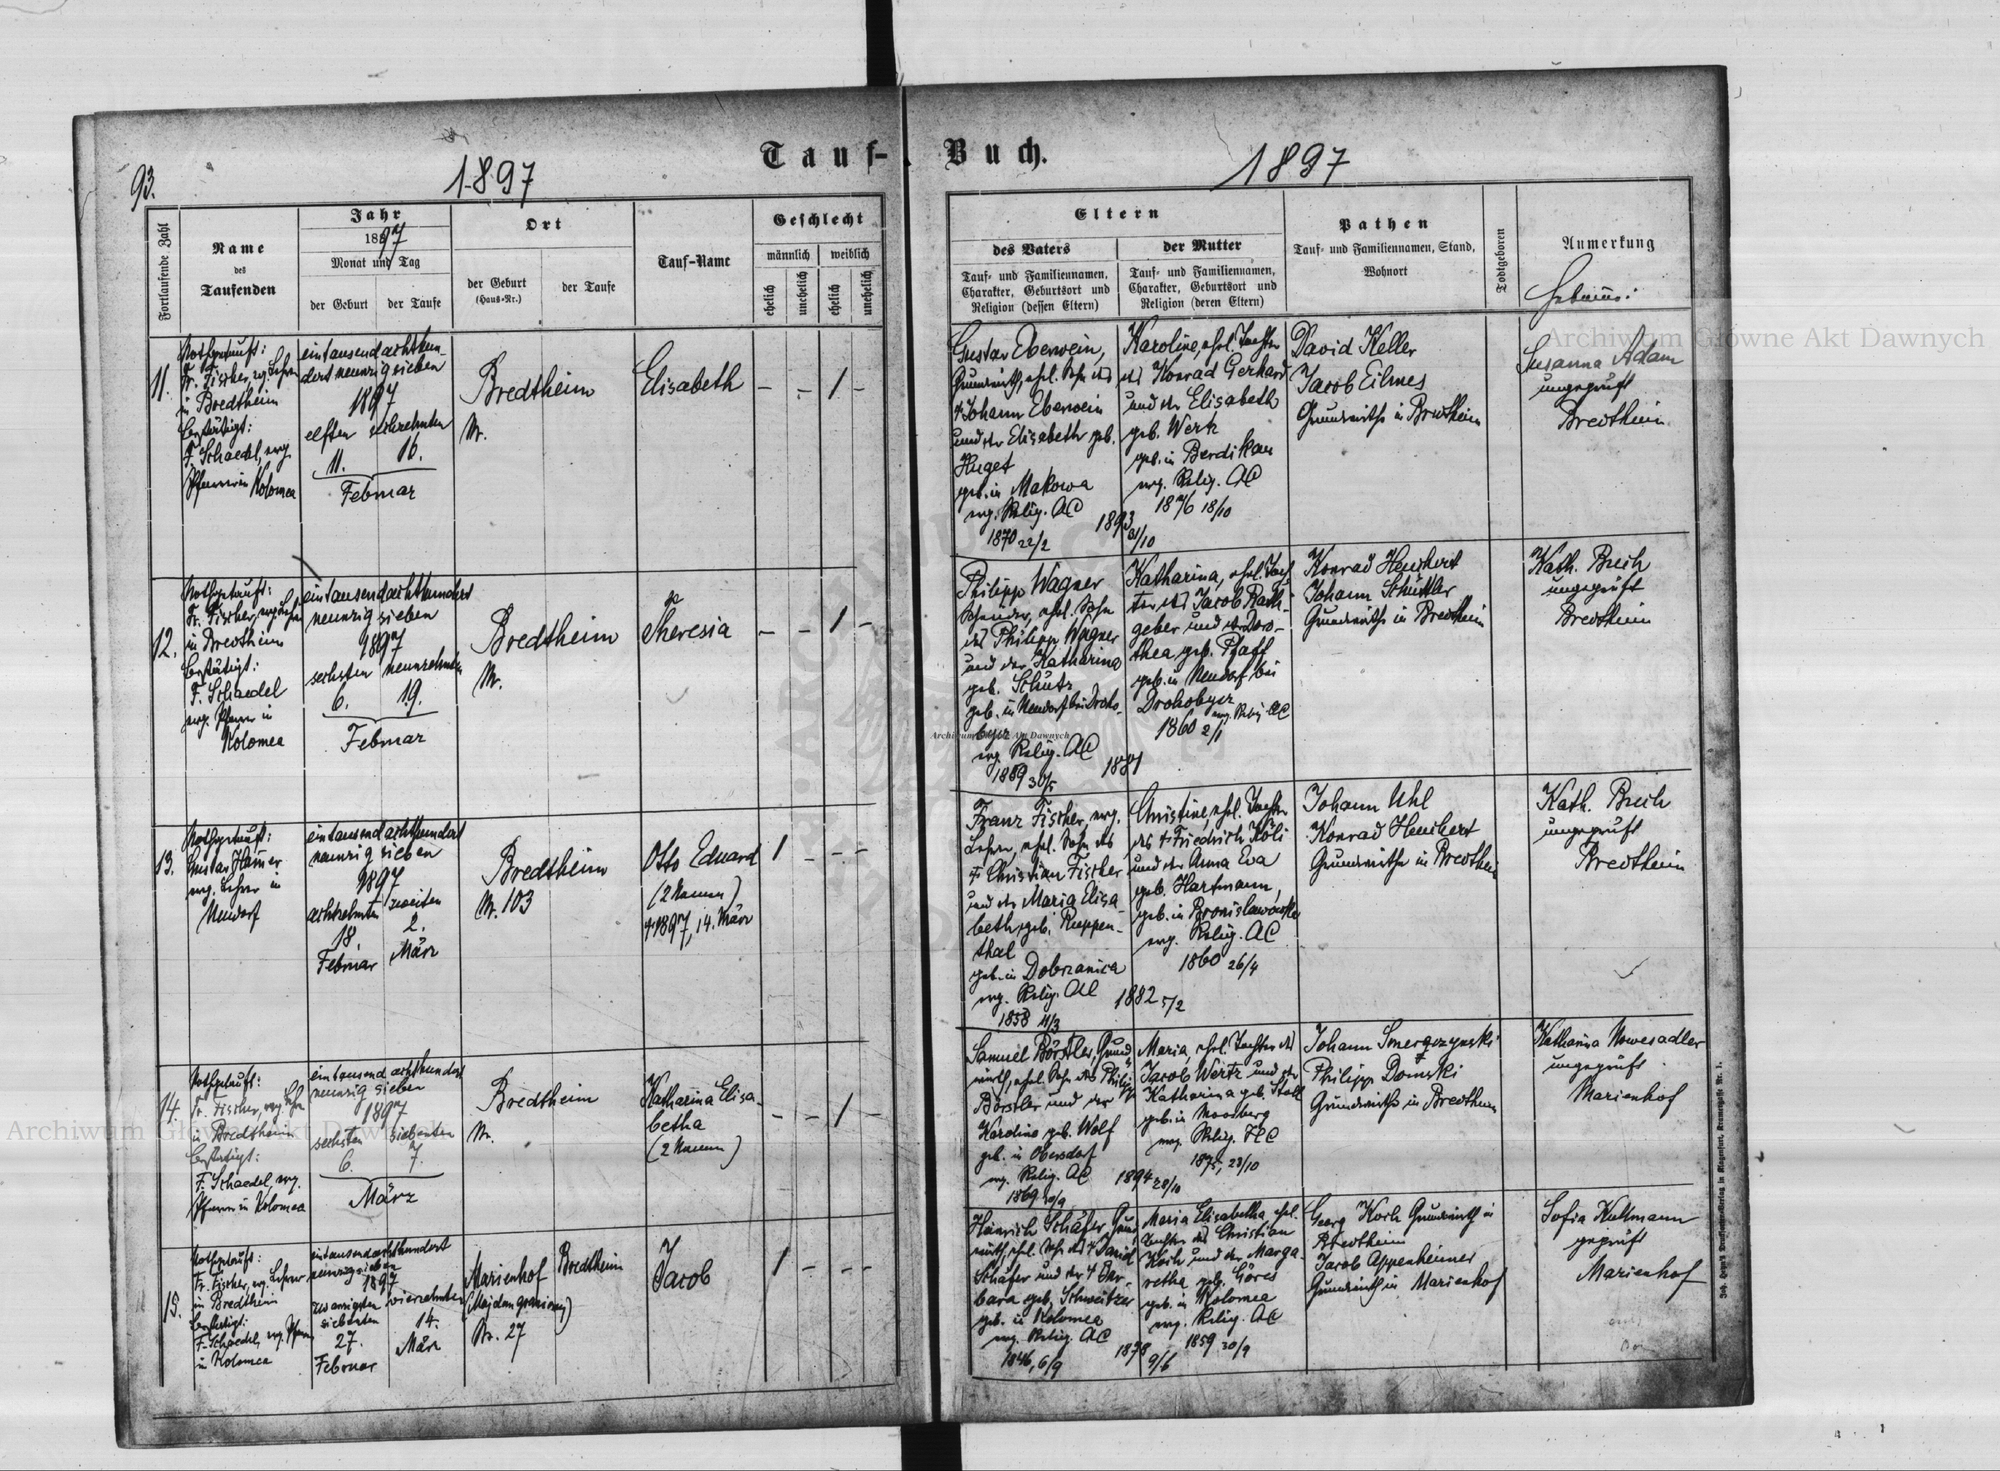 93.
1897
Tauf-
Buch.
1897
Fortlaufende Zahl
Name
des
Taufenden
Jahr
1897
Monat und Tag
der Geburt
der Taufe
Ort
der Geburt
(Haus-Nr.)
der Taufe
Tauf-Name
Geschlecht
männlich
weiblich
ehelich
unehelich
ehelich
unehelich
Eltern
des Vaters
Tauf- und Familiennamen,
Charakter, Geburtsort und
Religion (dessen Eltern)
der Mutter
Tauf- und Familiennamen,
Charakter, Geburtsort und
Religion (deren Eltern)
Pathen
Tauf- und Familiennamen, Stand,
Wohnort
Todtgeboren
Anmerkung
11.
Nothgetauft:
Fr. Fischer, evg. Lehrer
in Bredtheim
bestätigt:
F. Schaedel, evg.
Pfarrer in Kolomea
eintausend achthun-
dert neunzig sieben
1897
elften sechzehnten
11. 16.
Februar
Bredtheim
Nr.
Elisabeth
- - 1 -
Gustav Eberwein,
Grundwirth, ehel. Sohn des
† Johann Eberwein
und der Elisabeth geb.
Huget
geb. in Makowa
evg. Relig. AC
1870 22/2
1893
31/10
Karoline, ehel. Tochter
des Konrad Gerhard
und der Elisabeth
geb. Werk
geb. in Berdikau
evg. Relig. AC
1876 18/10
David Keller
Jacob Eilmes
Grundwirthe in Bredtheim
Susanna Adam
ungeprüft
Bredtheim
12.
Nothgetauft:
Fr. Fischer, evg. Lehrer
in Bredtheim
bestätigt:
F. Schaedel
evg. Pfarrer in
Kolomea
eintausend achthundert
neunzig sieben
1897
sechsten neunzehnten
6. 19.
Februar
Bredtheim
Nr.
Theresia
- - 1 -
Philipp Wagner
Schneider, ehel. Sohn
des Philipp Wagner
und der Katharina
geb. Schütz
geb. in Neudorf bei Droho-
bycz
evg. Relig. AC
1859 30/5
Katharina, ehel. Toch-
ter des Jacob Rath-
geber und der Doro-
thea, geb. Pfaff
geb. in Neudorf bei
Drohobycz
evg. Relig. AC
1860 2/1
Konrad Heuchert
Johann Schüttler
Grundwirthe in Bredtheim
Kath. Breih
ungeprüft
Bredtheim
13.
Nothgetauft:
Gustav Hamer
evg. Lehrer in
Neudorf
eintausend achthundert
neunzig sieben
1897
achtzehnten zweiten
18. 2.
Februar März
Bredtheim
Nr. 103
Otto Eduard
(2 Namen)
† 1897, 14. März
1 - - -
Franz Fischer, evg.
Lehrer, ehel. Sohn des
† Christian Fischer
und der Maria Elisa-
beth, geb. Ruppen-
thal
geb. in Dobrzanica
evg. Relig. AC
1858 11/3
1882 5/2
Christine, ehel. Tochter
des † Friedrich Köli
und der Anna Eva
geb. Hartmann,
geb. in Bronislawówka
evg. Relig. AC
1860 26/4
Johann Uhl
Konrad Heuchert
Grundwirthe in Bredtheim
Kath. Breih
ungeprüft
Bredtheim
14.
Nothgetauft:
Fr. Fischer, evg. Lehrer
in Bredtheim
bestätigt:
F. Schaedel, evg.
Pfarrer in Kolomea
eintausend achthundert
neunzig sieben
1897
sechsten siebenten
6. 7.
März
Bredtheim
Nr.
Katharina Elisa-
betha
(2 Namen)
- - 1 -
Samuel Börstler, Grund-
wirth, ehel. Sohn des Philipp
Börstler und der
Karoline geb. Wolf
geb. in Obersdorf
evg. Relig. AC
1869 10/9
1894 28/10
Maria, ehel. Tochter des
Jacob Wertz und der
Katharina geb. Stoll
geb. in Moosberg
evg. Relig. HC
1875, 23/10
Philipp Domski
Grundwirthe in Bredtheim
Katharina Nowesadler
ungeprüft
Marienhof
15.
Nothgetauft:
Fr. Fischer, evg. Lehrer
in Bredtheim
bestätigt:
F. Schaedel, evg. Pfarrer
in Kolomea
eintausend achthundert
neunzig sieben
1897
zwanzigsten vierzehnten
siebenten 14.
27. März
Februar
Marienhof
(Majdan graniczny)
Nr. 27
Bredtheim
Jacob
1 - - -
Heinrich Schäfer, Grund-
wirth, ehel. Sohn des † David
Schäfer und der † Bar-
bara geb. Schweitzer
geb. in Kolomea
evg. Relig. AC
1846, 6/9
1878
9/6
Maria Elisabetha, ehel.
Tochter des Christian
Koch und der Marga-
retha geb. Göres
geb. in Kolomea
evg. Relig. AC
1859 30/9
Georg Koch Grundwirth in
Bredtheim
Jacob Appenheimer
Grundwirth in Marienhof
Sofia Kullmann
geprüft
Marienhof
Archiwum Główne Akt Dawnych
Archiwum Główne Akt Dawnych
Archiwum Główne Akt Dawnych